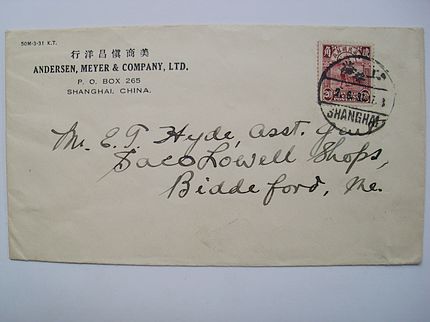 50M-3-31 K.T.
美商慎昌洋行
ANDERSEN, MEYER & COMPANY, LTD.
P. O. BOX 265
SHANGHAI, CHINA.
SHANGHAI
Mr. E. T. Hyde, Asst. Agent
Saco Lowell Shops,
Biddeford, Me.